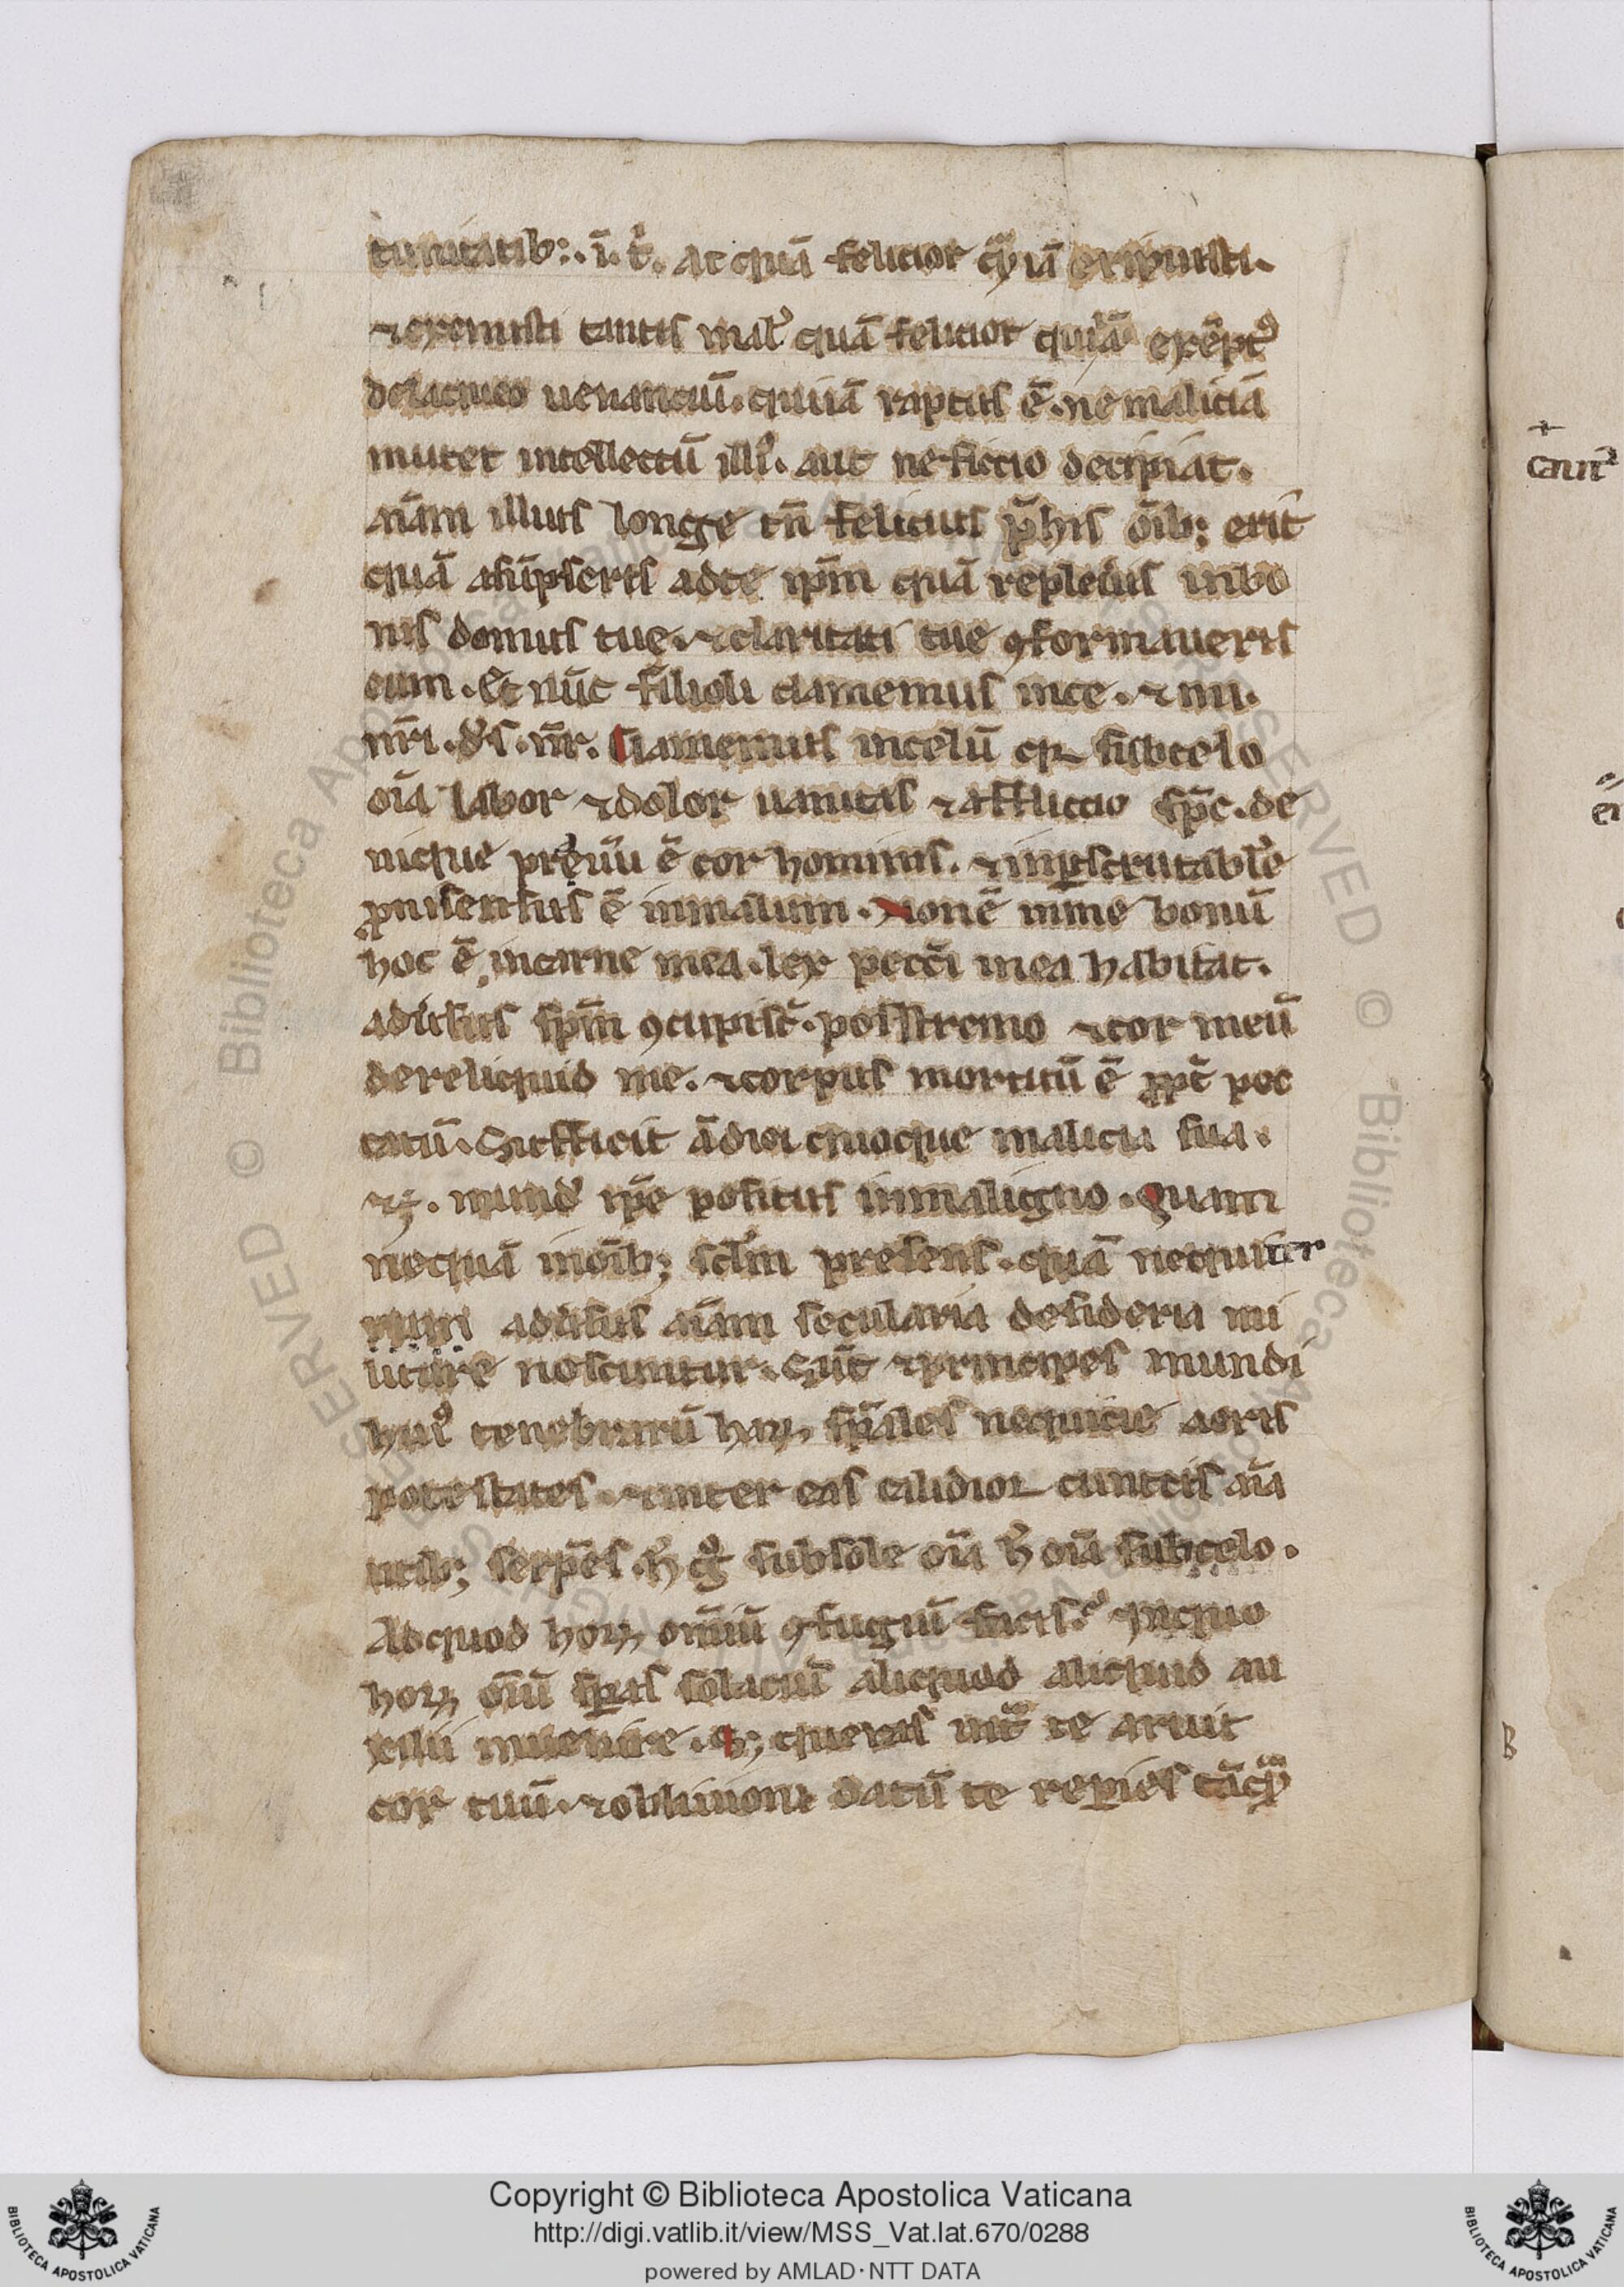 tunitatib;. ī. t̄. at quā felicior qͫ iā eripuisti.
⁊ exemisti tantis mal' quā felicior qui iā exēpt⁹
de laqueo uenanciū. qui iā raptus ē. ne maliciā
mutet intellectū illi⁹. aut ne fictio decipiat.
aīam illius longe tn̄ felicius p̄ his oīb; erit
quā asūpseris ad te ip̄m quā repleūis in bo
nis domus tue. ⁊ claritati tue ꝯformaueris
eum. Et nūc filioli clamemus in te. ⁊ mi.
nr̄i. ds̄. nr̄. Clamemus in celū qꝛ sub celo
oīa labor ⁊ dolor uanitas ⁊ afflictio sp̄c. de
nique preuū ē cor hominis. ⁊ inp̄scrutabile
ꝓni sensus ē in malum. Non ē in me bonū
hoc ē in carne mea. lex pecc̄i in ea habitat.
adūsus sp̄m ꝯcupisc̄. postremo ⁊ cor meū
dereliquid me. ⁊ corpus mortuū ē ꝓpt̄ pec
catū. Sufficit ādiei quoque malicia sua.
⁊ꝫ. mund⁹ ip̄e positus in maligno. Quam
nequā inoīb; sclm̄ presens. quā nequiter
num adūsus aīam secularia desideria mi
litare noscuntur. Sūt ⁊ principes mundi
hui⁹ tenebrarū haꝝ. sp̄ales nequicie aeris
potestates. ⁊ inter eas calidior cunctis aīa
ntib; serpēs. h̄ ḡ sub sole oīa h̄ oīa sub celo.
Ad quod hoꝝ omīū ꝯfugiū facis. In quo
hoꝝ oīū sp̄as solaciū aliquod aliquid au
xilii inuenire. Sꝫ queras int̄ te aruit
cor tuū. ⁊ obliuioni datū te repies tāqͫ
Copyright © Biblioteca Apostolica Vaticana
http://digi.vatlib.it/view/MSS_Vat.lat.670/0288
powered by AMLAD·NTT DATA